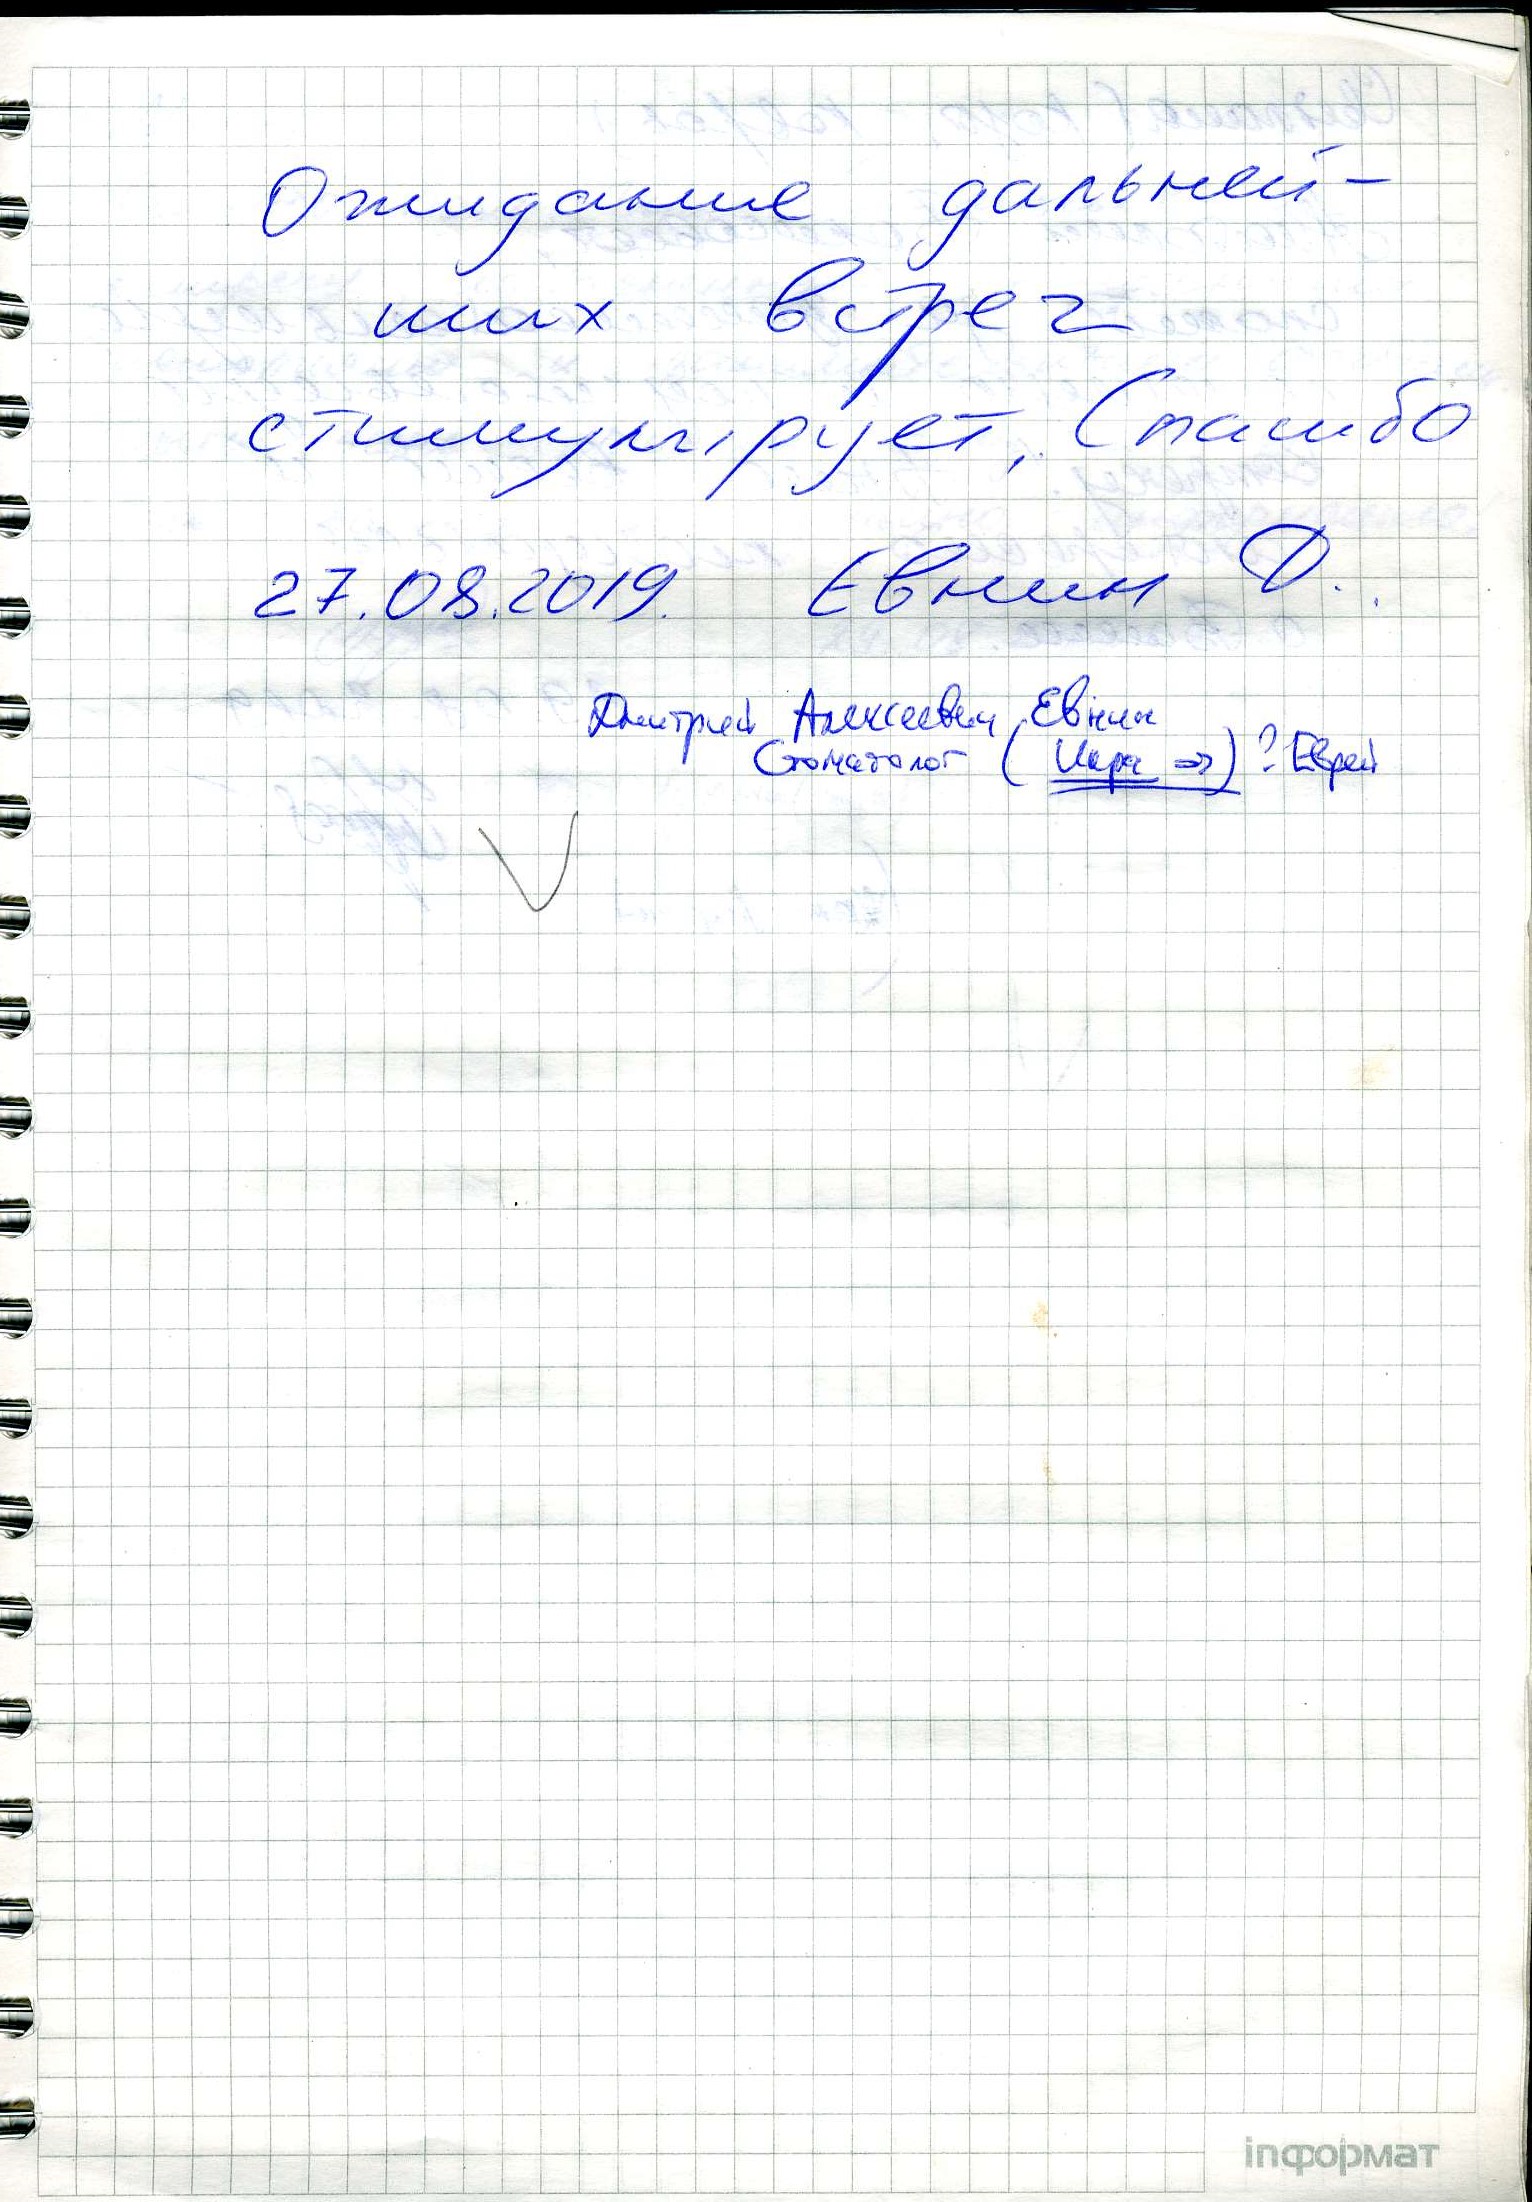 Ожидание дальней-
ших встреч
стимулирует. Спасибо
27.08.2019. Евнин Д.
Дмитрий Алексеевич Евнин
Стоматолог ( ⇒) ? Еврей
inформат